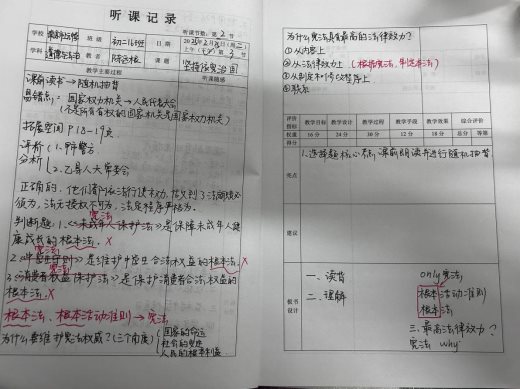 听课记录
学校
班级 初二16班
日期 2025年2月25日(周二)
听课节数:第2节
上午(下午)第3节
学科 道德与法治
教者
课题 坚持依宪治国
教学主要过程
听课随感
课前读书→随机抽背
易错点:国家权力机关→人民代表大会
(不是所有的国家机关是国家权力机关)
拓展空间 P18-19页
评析 1.
分析 2.乙县人大常委会
正确的,他们都应依法行使权力,做到了法定职责必
须为,法无授权不可为,法定程序严格为。
判断题:1.《未成年人保护法》是保障未成年人健
宪法
康成长的根本法。X
宪法
2.《中学生守则》是维护中学生合法权益的根本法。X
宪法
3.《消费者权益保护法》是保护消费者合法权益的
根本法。X
根本法、根本活动准则→宪法
为什么要维护宪法权威?(三个角度)
国家的命运
社会的安定
人民的根本利益
为什么宪法具有最高的法律效力?
①从内容上
②从法律效力上
③从制定和修改程序上
④联系
评价指标
教学目标
教学设计
教学过程
教学手段
教学效果
综合评价
权重
16分
24分
30分
12分
18分
总分
等第
得分
亮点
1.选择题核心考点课前朗读并进行随机抽背
建议
板书设计
一、读背
二、理解
only宪法
根本活动准则
根本法
三、最高法律效力?
宪法 why